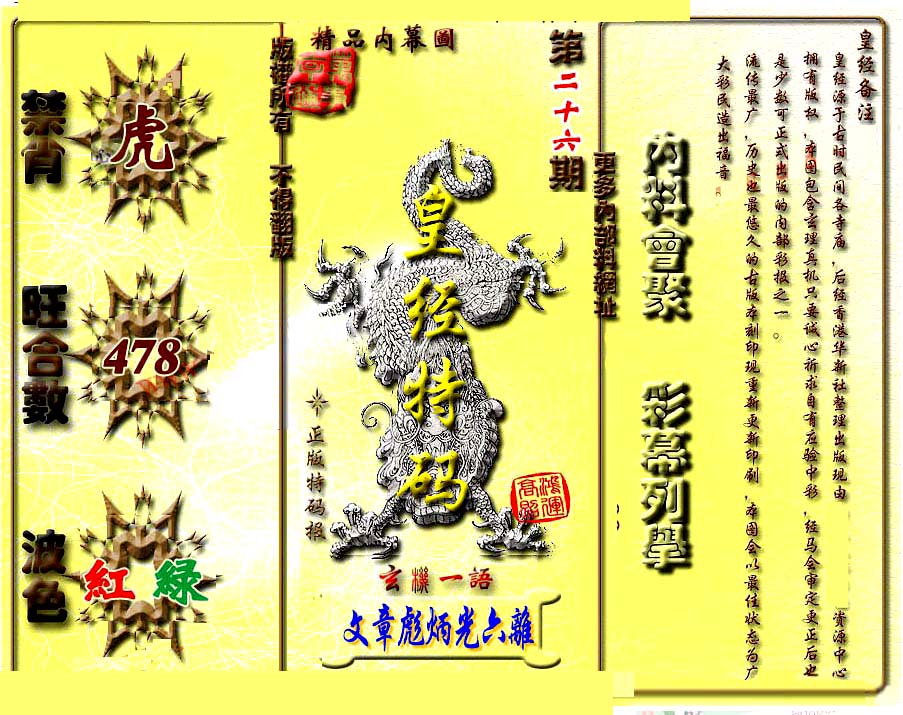 精品内幕圖
第二十六期
版權所有 不得翻版
更多內部料網址
禁肖
虎
旺合數
478
波色
紅 綠
皇经特码
正版特码报
鴻運高照
玄機一語
文章彪炳光六離
内料會聚
彩幕列舉
皇经备注
皇经源于古时民间各寺庙，后经香港华新社整理出版现由 资源中心
拥有版权，本图包含玄理真机只要诚心祈求自有应验中彩，经马会审定更正后也
是少数可正式出版的内部彩报之一。
流传最广，历史也最悠久的古版本刻印现重新更新印刷，本图会以最佳状态为广
大彩民造出福音